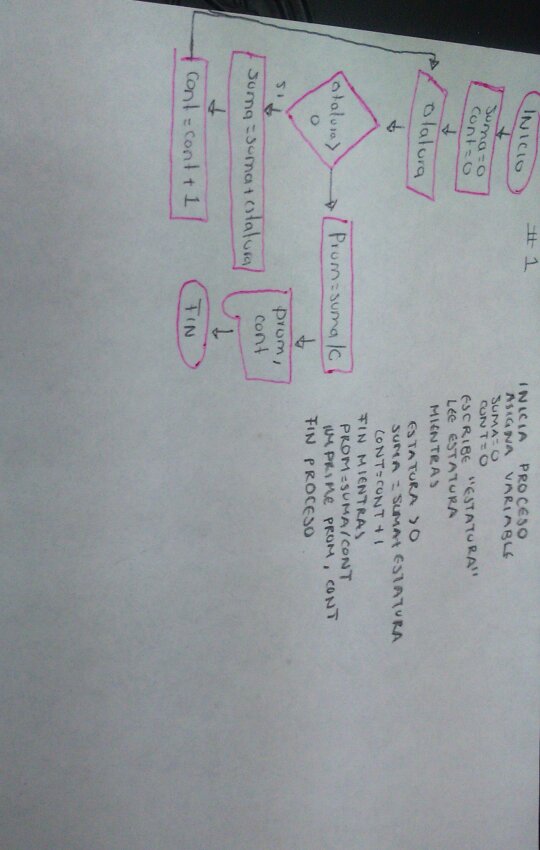 # 1
INICIO
suma=0
cont=0
estatura
estatura>
0
si
suma=suma+estatura
cont=cont+1
Prom=suma/c
prom,
cont
FIN
INICIA PROCESO
ASIGNA VARIABLE
SUMA=0
CONT=0
ESCRIBE "ESTATURA"
LEE ESTATURA
MIENTRAS
ESTATURA >0
SUMA = SUMA+ESTATURA
CONT=CONT+1
FIN MIENTRAS
PROM=SUMA/CONT
IMPRIME PROM, CONT
FIN PROCESO